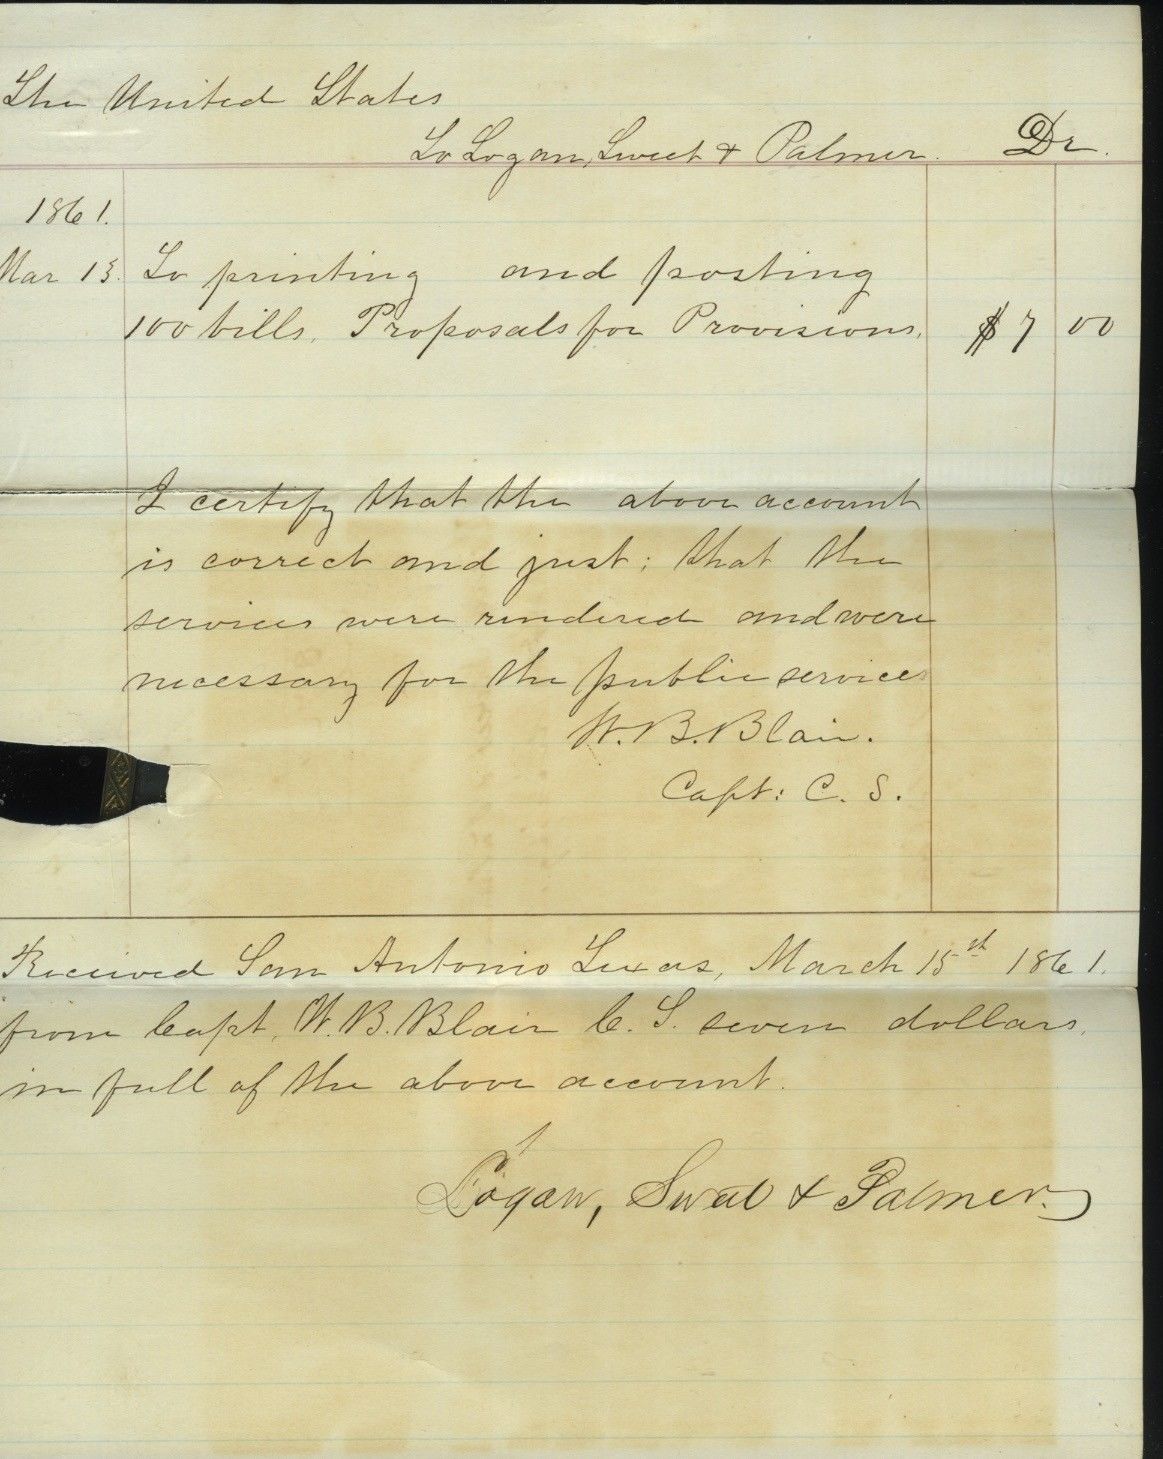 The United States
To Logan, Sweet & Palmer. Dr.
1861.
Mar 13. To printing and posting
100 bills, Proposals for Provisions, $7 00
I certify that the above account
is correct and just; that the
services were rendered and were
necessary for the public services
W. B. Blair.
Capt: C. S.
Received San Antonio Texas, March 15st 1861.
from Capt. W. B. Blair C. S. seven dollars,
in full of the above account.
Logan, Sweet & Palmer.